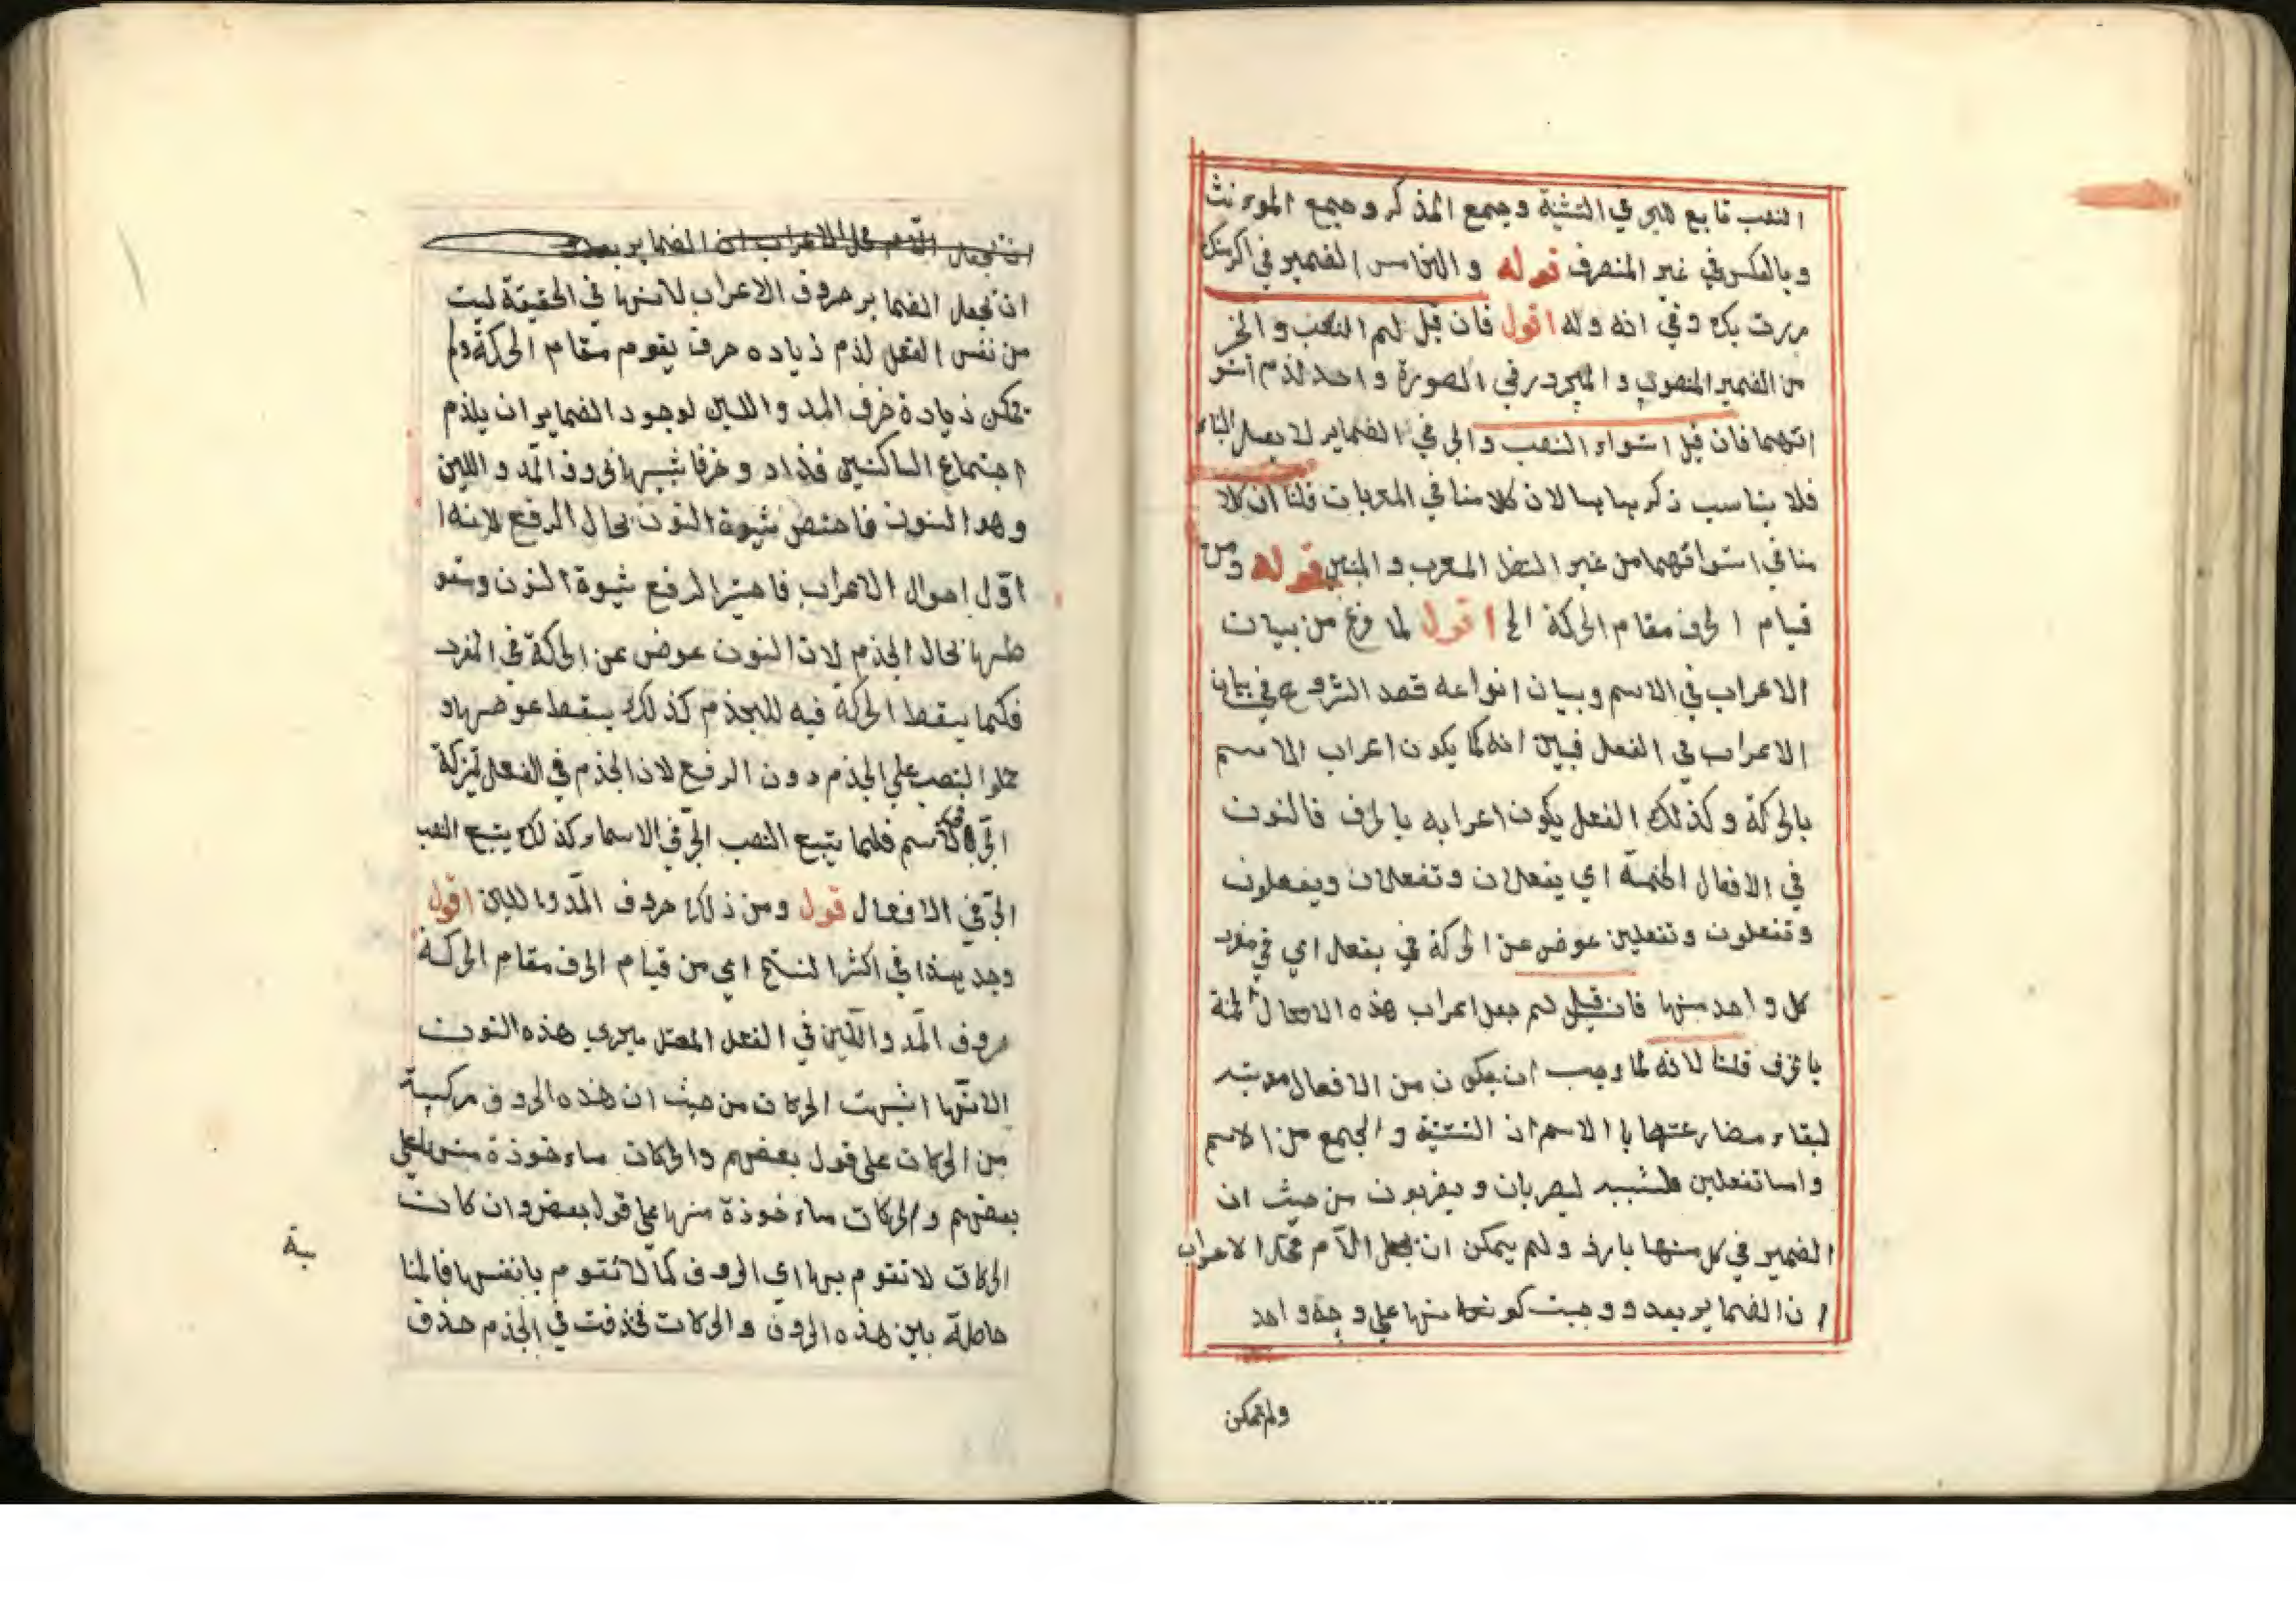 النصب تابع للجر في التثنية وجمع المذكر وجمع الموءنث
وبالعكس في غير المنصرف قوله والخامس الضمير في اكرمتك
مررت بك وفي انه وله اقول فان قيل لم النصب والجر
من الضمير المنصوب والمجرور في الصورة واحد لزم استو
ائهما فان قيل استواء النصب والجر في الضماير لا بعمل الباء
فلا يناسب ذكرهما بها لان كلامنا في المعربات قلنا ان كلا
منا في استوائهما من غير النظر المعرب والمبني قوله ومن
قيام الحرف مقام الحركة الخ اقول لما فرغ من بيان
الاعراب في الاسم وبيان انواعه قصد الشروع في بيان
الاعراب في الفعل فبين انه كما يكون اعراب الاسم
بالحركة وكذلك الفعل يكون اعرابه بالحرف فالنون
في الافعال الخمسة اي يفعلان وتفعلان ويفعلون
وتفعلون وتفعلين عوض عن الحركة في يفعل اي في مفرد
كل واحد منها فان قيل لم جعل اعراب هذه الافعال الخمسة
بالحرف قلنا لانه لما وجب ان يكون من الافعال
لبقاء مضارعتها بالاسم ان التثنية والجمع من الاسم
واما تفعلين ليضربان ويضربون من حيث ان
الضمير في كل منها بارز ولم يمكن ان يجعل اللام محلا لاعراب
ان الضماير بعد ووجبت كونها منها على وجه واحد
ولم تمكن
ان تجعل اللام محل الاعراب ان الضماير بعد و
ان تجعل الضماير حروف الاعراب لانها في الحقيقة ليت
من نفس الفعل لزم زياده حرف يقوم مقام الحركة ولم
تمكن زيادة حرف المد واللين لوجود الضماير ان يلزم
اجتماع الساكنين فزاد وحرفا شبيها بحروف المد واللين
وهو النون فاختص ثبوة النون بحال الرفع لانه ا
اول احوال الاعراب فاختير الرفع ثبوة النون وسقو
طها بحال الجزم لان النون عوض عن الحركة في المفرد
فكما يسقط الحركة فيه للجزم كذلك يسقط عوضها و
حملوا النصب على الجزم دون الرفع لان الجزم في الفعل بمنزلة
الجر في الاسم فكما يتبع النصب الجر في الاسماء كذلك يتبع النصب
الجر في الافعال قول ومن ذلك حروف المد واللين اقول
وجد بهذا في اكثر النسخ اي من قيام الحرف مقام الحركة
حروف المد واللين في الفعل المعتل ميجري هذه النون
لانها اشبهت الحركات من حيث ان هذه الحروف مركبة
من الحركات على قول بعضهم والحركات ماءخوذة منها على
بعضهم والحركات ماءخوذة منها على قول بعض وان كانت
الحركات لا تقوم بها اي الحروف كما لا تقوم بانفسها فالمنا
حاصلة بين هذه الحروف والحركات فحذفت في الجزم حذف
بة